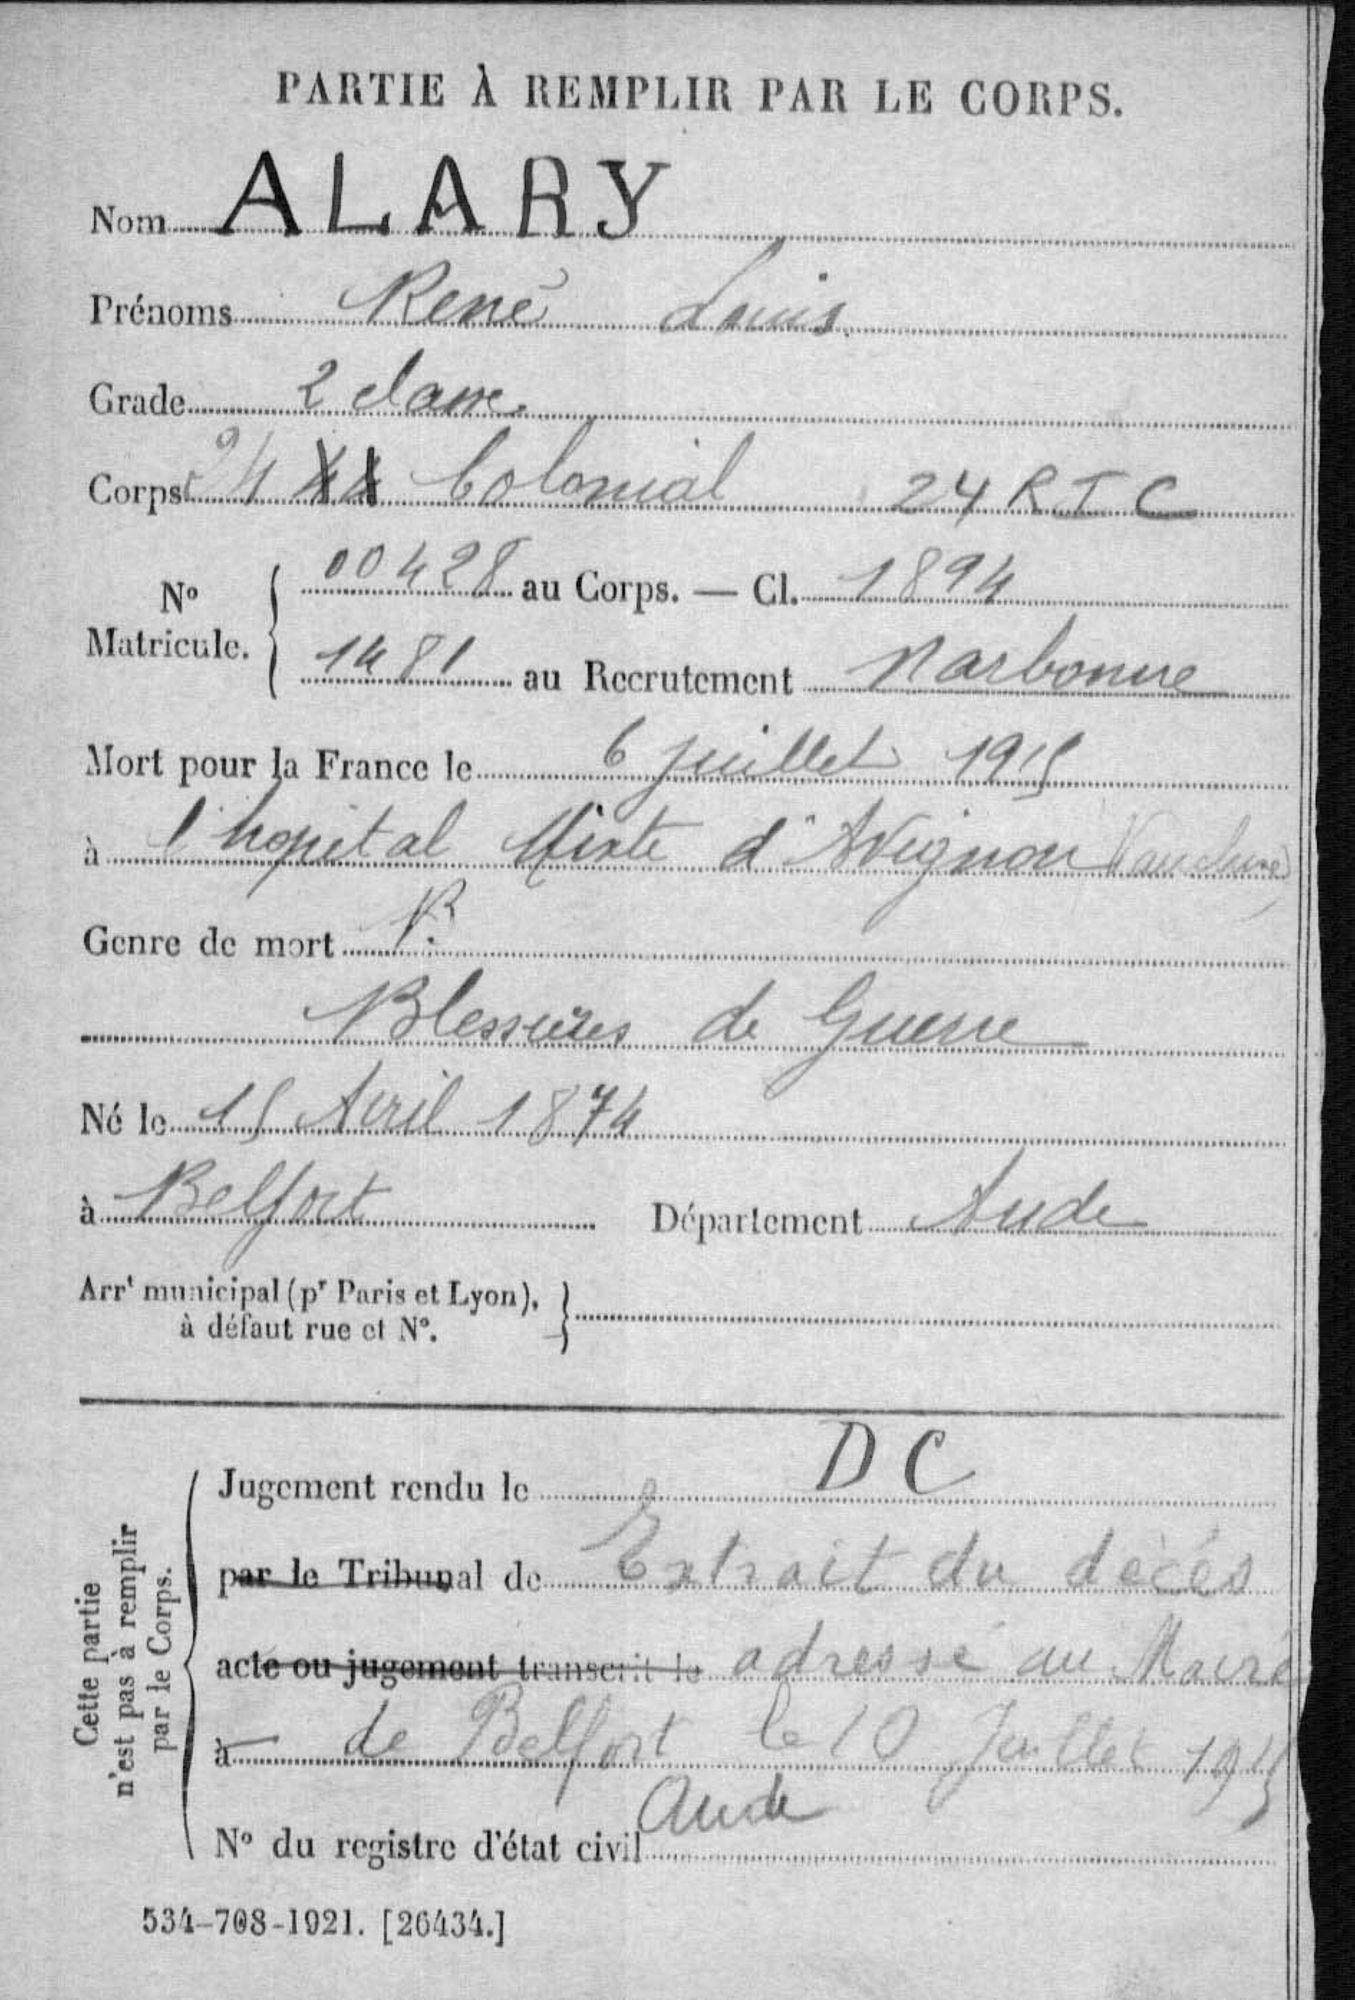 PARTIE À REMPLIR PAR LE CORPS.
Nom ALARY
Prénoms René Louis
Grade 2 classe
Corps 24 Colonial 24 R I C
N° Matricule. { 00428 au Corps. — Cl. 1894
1481 au Recrutement Narbonne
Mort pour la France le 6 juillet 1915
à l'hopital Mixte d'Avignon Vaucluse
Genre de mort
Blessures de Guerre
Né le 15 Avril 1874
à Belfort Département Aude
Arrt municipal (pr Paris et Lyon),
à défaut rue et N°.
Cette partie
n'est pas à remplir
par le Corps.
Jugement rendu le D C
par le Tribunal de Extrait du décés
acte ou jugement transcrit le adressé au Maire
à de Belfort le 10 Juillet 1915
Aude
N° du registre d'état civil
534-708-1921. [26434.]